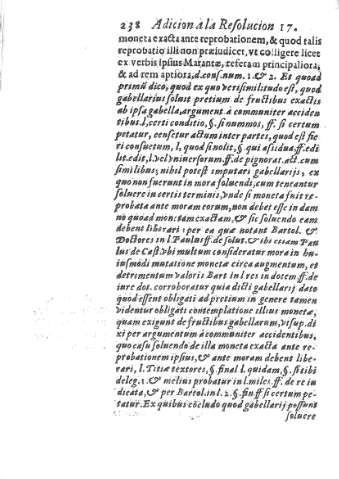 238 Adicion à la Resolucion 17.
moneta exacta ante reprobationem, & quod talis
reprobatio illi non præiudicet, vt colligere licet
ex verbis ipsius Marantæ, referam principaliora,
& ad rem aptiora, d. cons. num. 1. & 2. Et quoad
primũ dico, quod ex quo verisimilitudo est, quod
gabellarius soluit pretium de fructibus exactis
ab ipsa gabella, argument. à communiter acciden
tibus. l. certi conditio, §. si nummos, ff. si certum
petatur, censetur actum inter partes, quod est fie
ri consuetum, l. quod si nolit, §. qui assidua. ff. edi
lit. edit. l. vel vniuersorum. ff. de pignorat. act. cum
similibus, nihil potest imputari gabellarijs, ex
quo non fuerunt in mora soluendi, cum teneantur
soluere in certis terminis, vnde si moneta fuit re-
probata ante moram eorum, non debet esse in dam
no quoad monetam exactam, & sic soluendo eam
debent liberari per ea quæ notant Bartol. &
Doctores in l. Paulus ff. de solut. & ibi etiam Pau
lus de Cast. vbi multum consideratur mora in hu-
iusmodi mutatione monetæ circa augmentum, et
detrimentum valoris Bart. in l. res in dotem ff. de
iure dos. corroboratur quia dicti gabellarij dato
quod essent obligati ad pretium in genere tamen
videntur obligati contemplatione illius monetæ,
quam exigunt de fructibus gabellarum, vt sup. di
xi per argumentum à communiter accidentibus,
quo casu soluendo de illa moneta exacta ante re-
probationem ipsius, & ante moram debent libe-
rari, l. Titia textores, §. final. l. quidam, §. si tibi
deleg. 1. & melius probatur in l. miles. ff. de re iu
dicata, & per Bartol. in l. 2. §. fin ff. si certum pe-
tatur. Ex quibus cõcludo quod gabellarij possunt
soluere